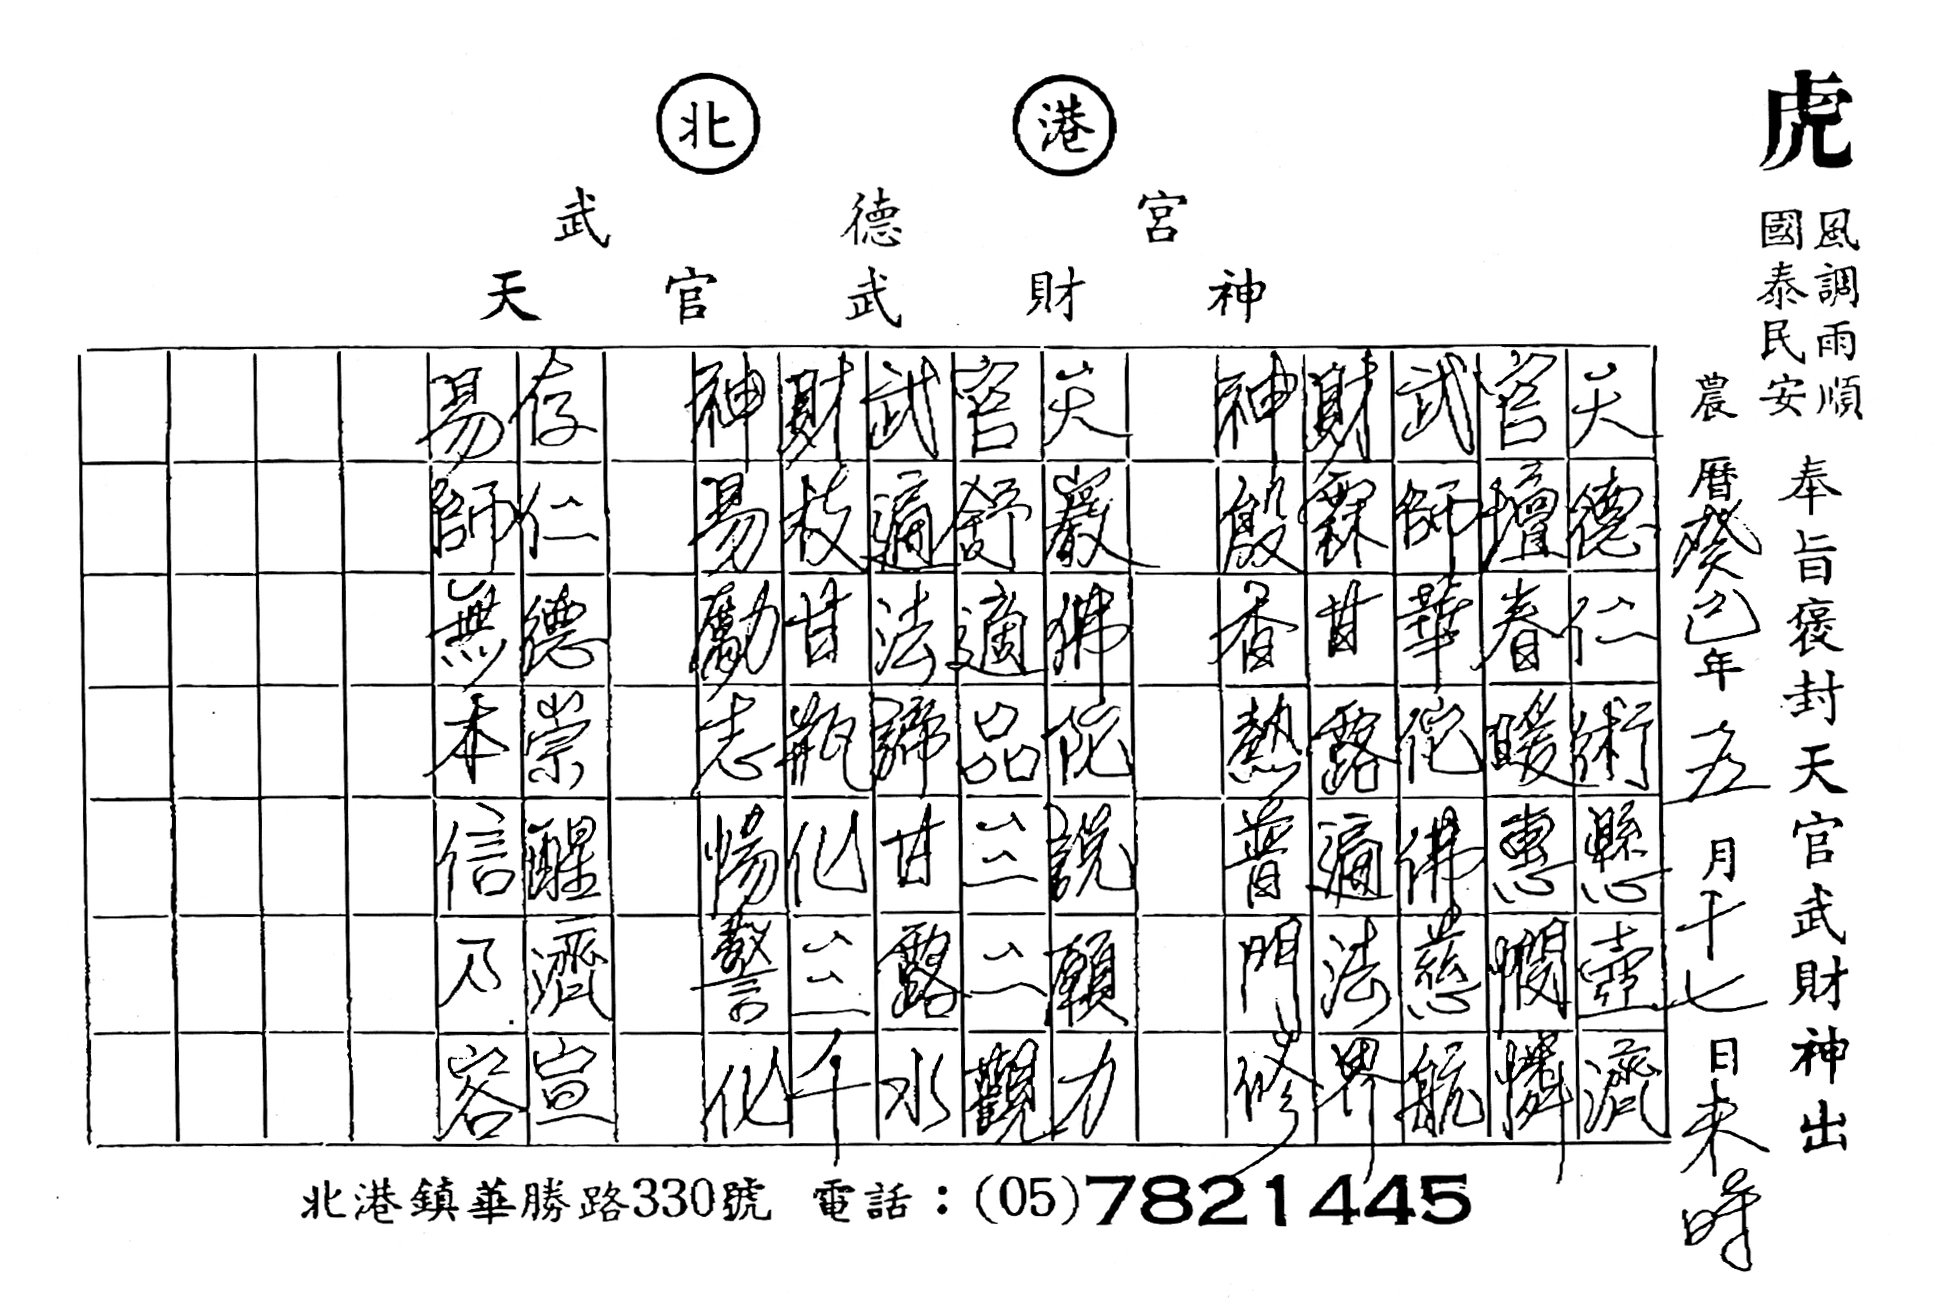 北港
武德宮
天官武財神
虎
風調雨順
國泰民安
奉旨褒封天官武財神出
農曆癸巳年五月十七日未時
天德仁術懸壺濟
官壇春暖惠憫憐
武師華佗佛慈航
財霖甘露遍法界
神殿香熱普門修
天嚴佛陀說願力
官舒適品三二觀
武遍法諦甘露水
財枝甘瓶化三千
神易勵志惕警化
存仁德崇醒濟宣
易師無本信乃容
北港鎮華勝路330號 電話：(05)7821445